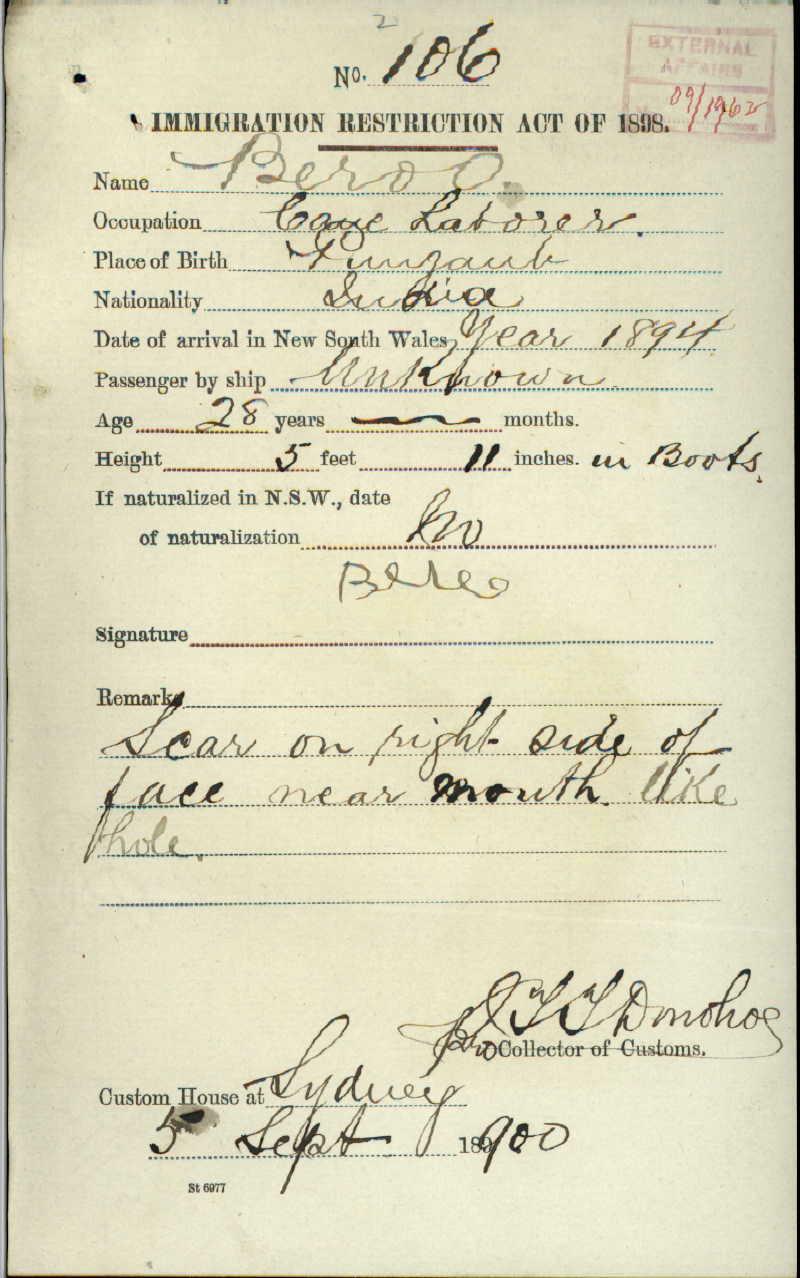 2
No. 106
EXTERNAL
AFFAIRS
09/1962
IMMIGRATION RESTRICTION ACT OF 1898.
Name Beroo.
Occupation Cane Laborer.
Place of Birth Punjaub
Nationality India
Date of arrival in New South Wales, Year 1894
Passenger by ship Unknown.
Age 28 years — months.
Height 5 feet 11 inches. in Boots.
If naturalized in N.S.W., date
of naturalization No
Bereo
Signature
Remarks
Scar on right side of
face near mouth like
hole.
Donohoe
pro Collector of Customs.
Custom House at Sydney
5 Sept 1900
St 6977